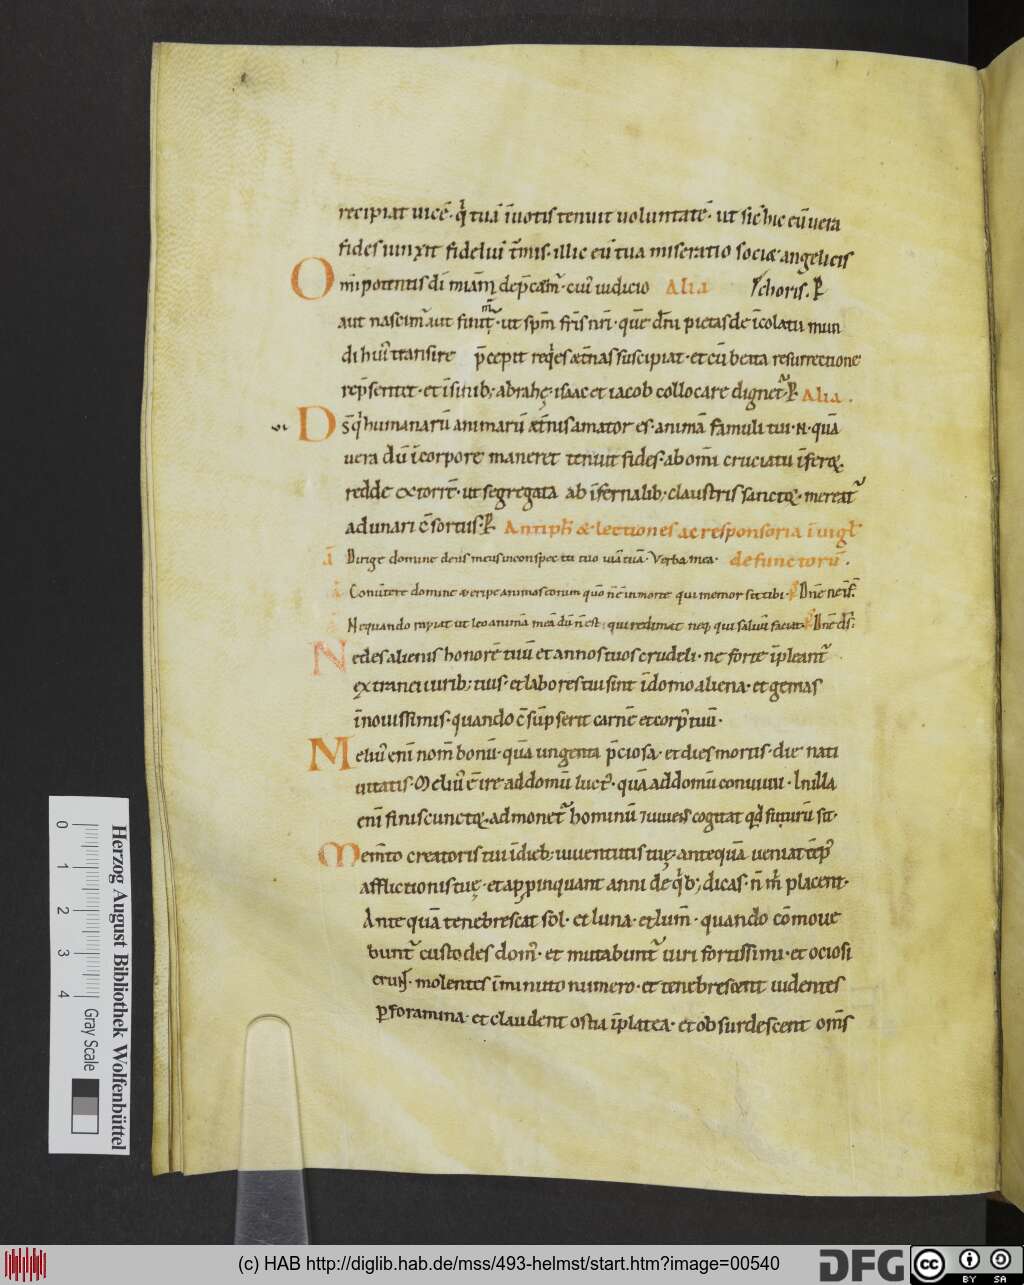 recipiat uicē· q̇ tuā ī uotis tenuit uoluntatē· ut sic̄ hic eū uera
fides iunxit fideliū t̄mis· illic eū tua miseratio societ angelicis
Om̄ipotentis dī mīam dep̄cam̄· cuiꝰ iudicio Alia choris. P
aut nascim̄ aut finit̄· ut sp̄m fr̄is nr̄i· quē dn̄i pietas de īcolatu mun
di huiꝰ transire p̄cepit req̇es æt̄nas suscipiat· et cū beata resurrectione
rep̄sentet· et ī sinib; abrahę· isaac et iacob collocare dignet̄· P Alia.
Ds̄ q̇ humanarū animarū æt̄nus amator es· animā famuli tui· N· quā
uera dū ī corpore maneret tenuit fides· ab om̄i cruciatu īferoꝝ
redde extorrē· ut segregata ab īfernalib; claustris sanctoꝝ mereat̄
adunari c̄sortiis· P Antiph̄ & lectiones ac responsoria ī uigł
ā Dirige domine deus meus in conspectu tuo uiā tuā· Verba mea· defunctorū.
ā Conūtere domine & eripe animas eorum quō nē in morte qui memor sit tibi· Dn̄e ne īf̄.
Nequando rapiat ut leo animā meā dū n̄ est qui redimat neq; qui saluū faciat· Dn̄e ds̄.
Ne des alienis honorē tuū et annos tuos crudeli· ne forte īpleant̄
extranei uirib; tuis· et labores tui sint ī domo aliena· et gemas
ī nouissimis· quando c̄sūpserit carnē et corpꝰ tuū·
Meliꝰ enī nom̄ bonū· quā ungenta p̄ciosa· et dies mortis· die nati
uitatis· Meliꝰ ē ire ad domū luctꝰ· quā ad domū conuiuii· In illa
enī finis cunctoꝝ admonet̄ hominū ⁊ uiuens cogitat qd̄ futurū sit·
Mem̄to creatoris tui ī dieb; iuuentutis tuę· antequā ueniat tēpꝰ
afflictionis tuę· et appinquant anni de q̇b; dicas· n̄ m̄ placent·
Ante quā tenebrescat sol· et luna· et lum̄· quando cōmoue
bunt̄ custodes domꝰ· et mutabunt̄ uiri fortissimi· et ociosi
erunt· molentes ī minuto numero· et tenebrescent uidentes
ꝑ foramina· et claudent ostia ī platea· et obsurdescent om̄s
Herzog August Bibliothek Wolfenbüttel
0 1 2 3 4 Gray Scale
(c) HAB http://diglib.hab.de/mss/493-helmst/start.htm?image=00540
DFG cc BY SA